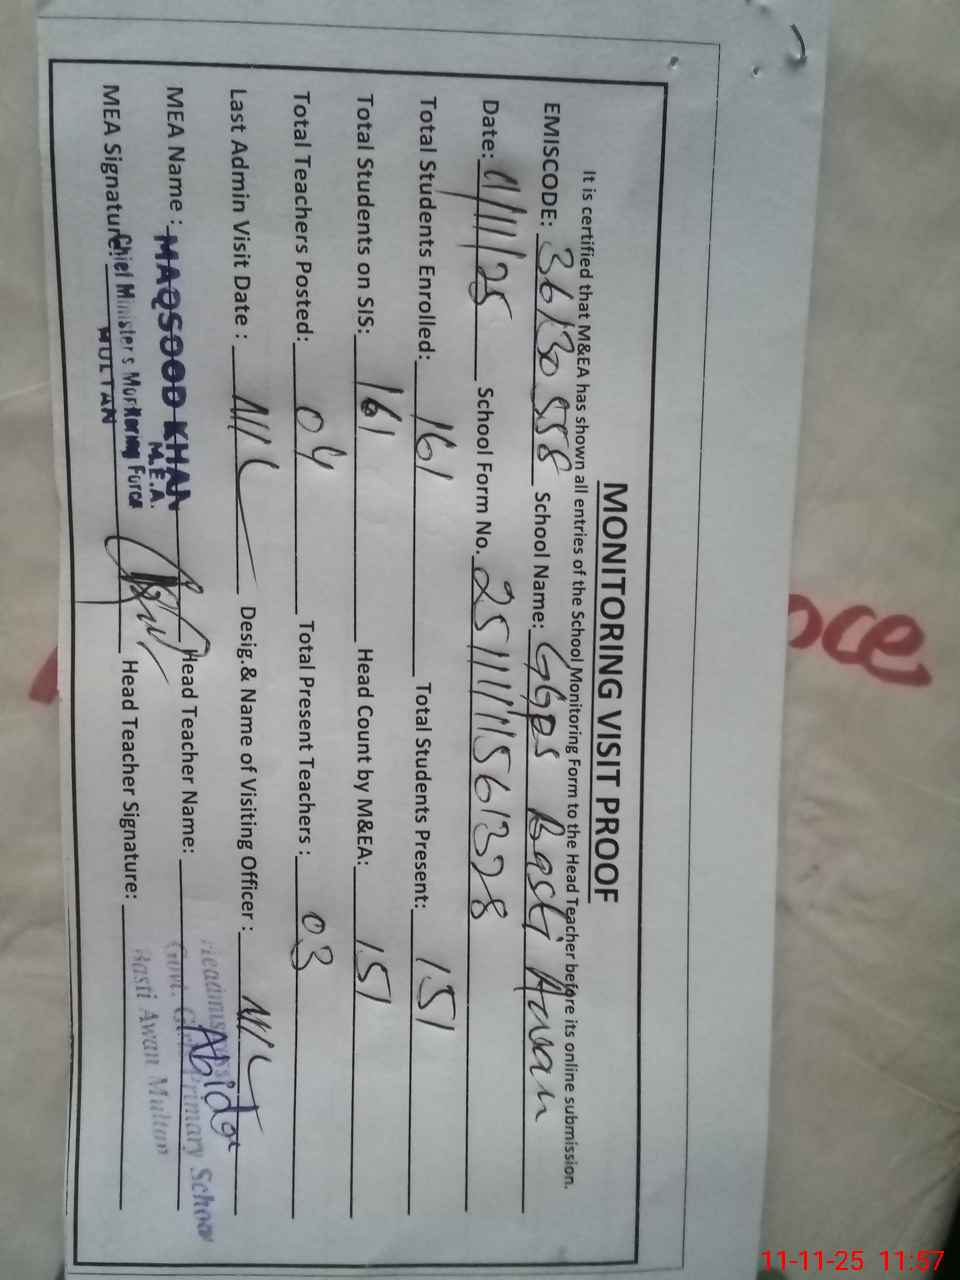 MONITORING VISIT PROOF
It is certified that M&EA has shown all entries of the School Monitoring Form to the Head Teacher before its online submission.
EMISCODE: 36130558 School Name: GGPS Basti Awan
Date: 11/11/25 School Form No.
Total Students Enrolled: 161 Total Students Present: 151
Total Students on SIS: 161 Head Count by M&EA: 151
Total Teachers Posted: 04 Total Present Teachers : 03
Last Admin Visit Date : NIL Desig.& Name of Visiting Officer : NIL
MEA Name : MAQSOOD KHAN Head Teacher Name: Abida
M.E.A.
MEA Signature: Chief Minister's Monitoring Force Head Teacher Signature:
MULTAN
Headmistress
Govt. Girls Primary School
Basti Awan Multan
11-11-25 11:57